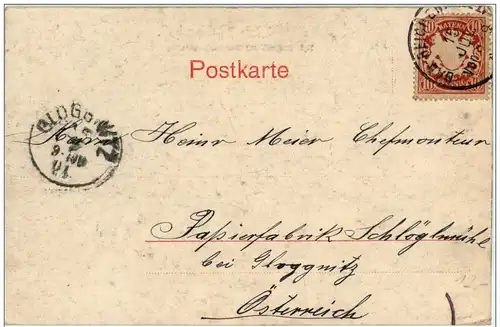 Postkarte
BAYERN
10 10
PFENNIG
GLOGGNITZ
Herrn Heinr Meier Chefmonteur
Papierfabrik Schlöglmühl
bei Gloggnitz
Österreich